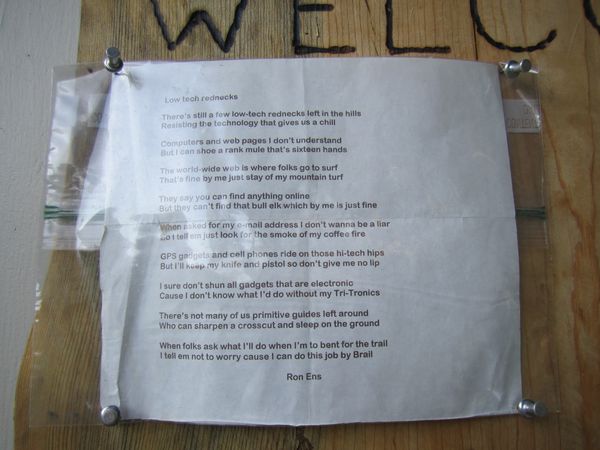 WELCO
Low tech rednecks
There's still a few low-tech rednecks left in the hills
Resisting the technology that gives us a chill
Computers and web pages I don't understand
But I can shoe a rank mule that's sixteen hands
The world-wide web is where folks go to surf
That's fine by me just stay of my mountain turf
They say you can find anything online
But they can't find that bull elk which by me is just fine
When asked for my e-mail address I don't wanna be a liar
So I tell em just look for the smoke of my coffee fire
GPS gadgets and cell phones ride on those hi-tech hips
But I'll keep my knife and pistol so don't give me no lip
I sure don't shun all gadgets that are electronic
Cause I don't know what I'd do without my Tri-Tronics
There's not many of us primitive guides left around
Who can sharpen a crosscut and sleep on the ground
When folks ask what I'll do when I'm to bent for the trail
I tell em not to worry cause I can do this job by Brail
Ron Ens